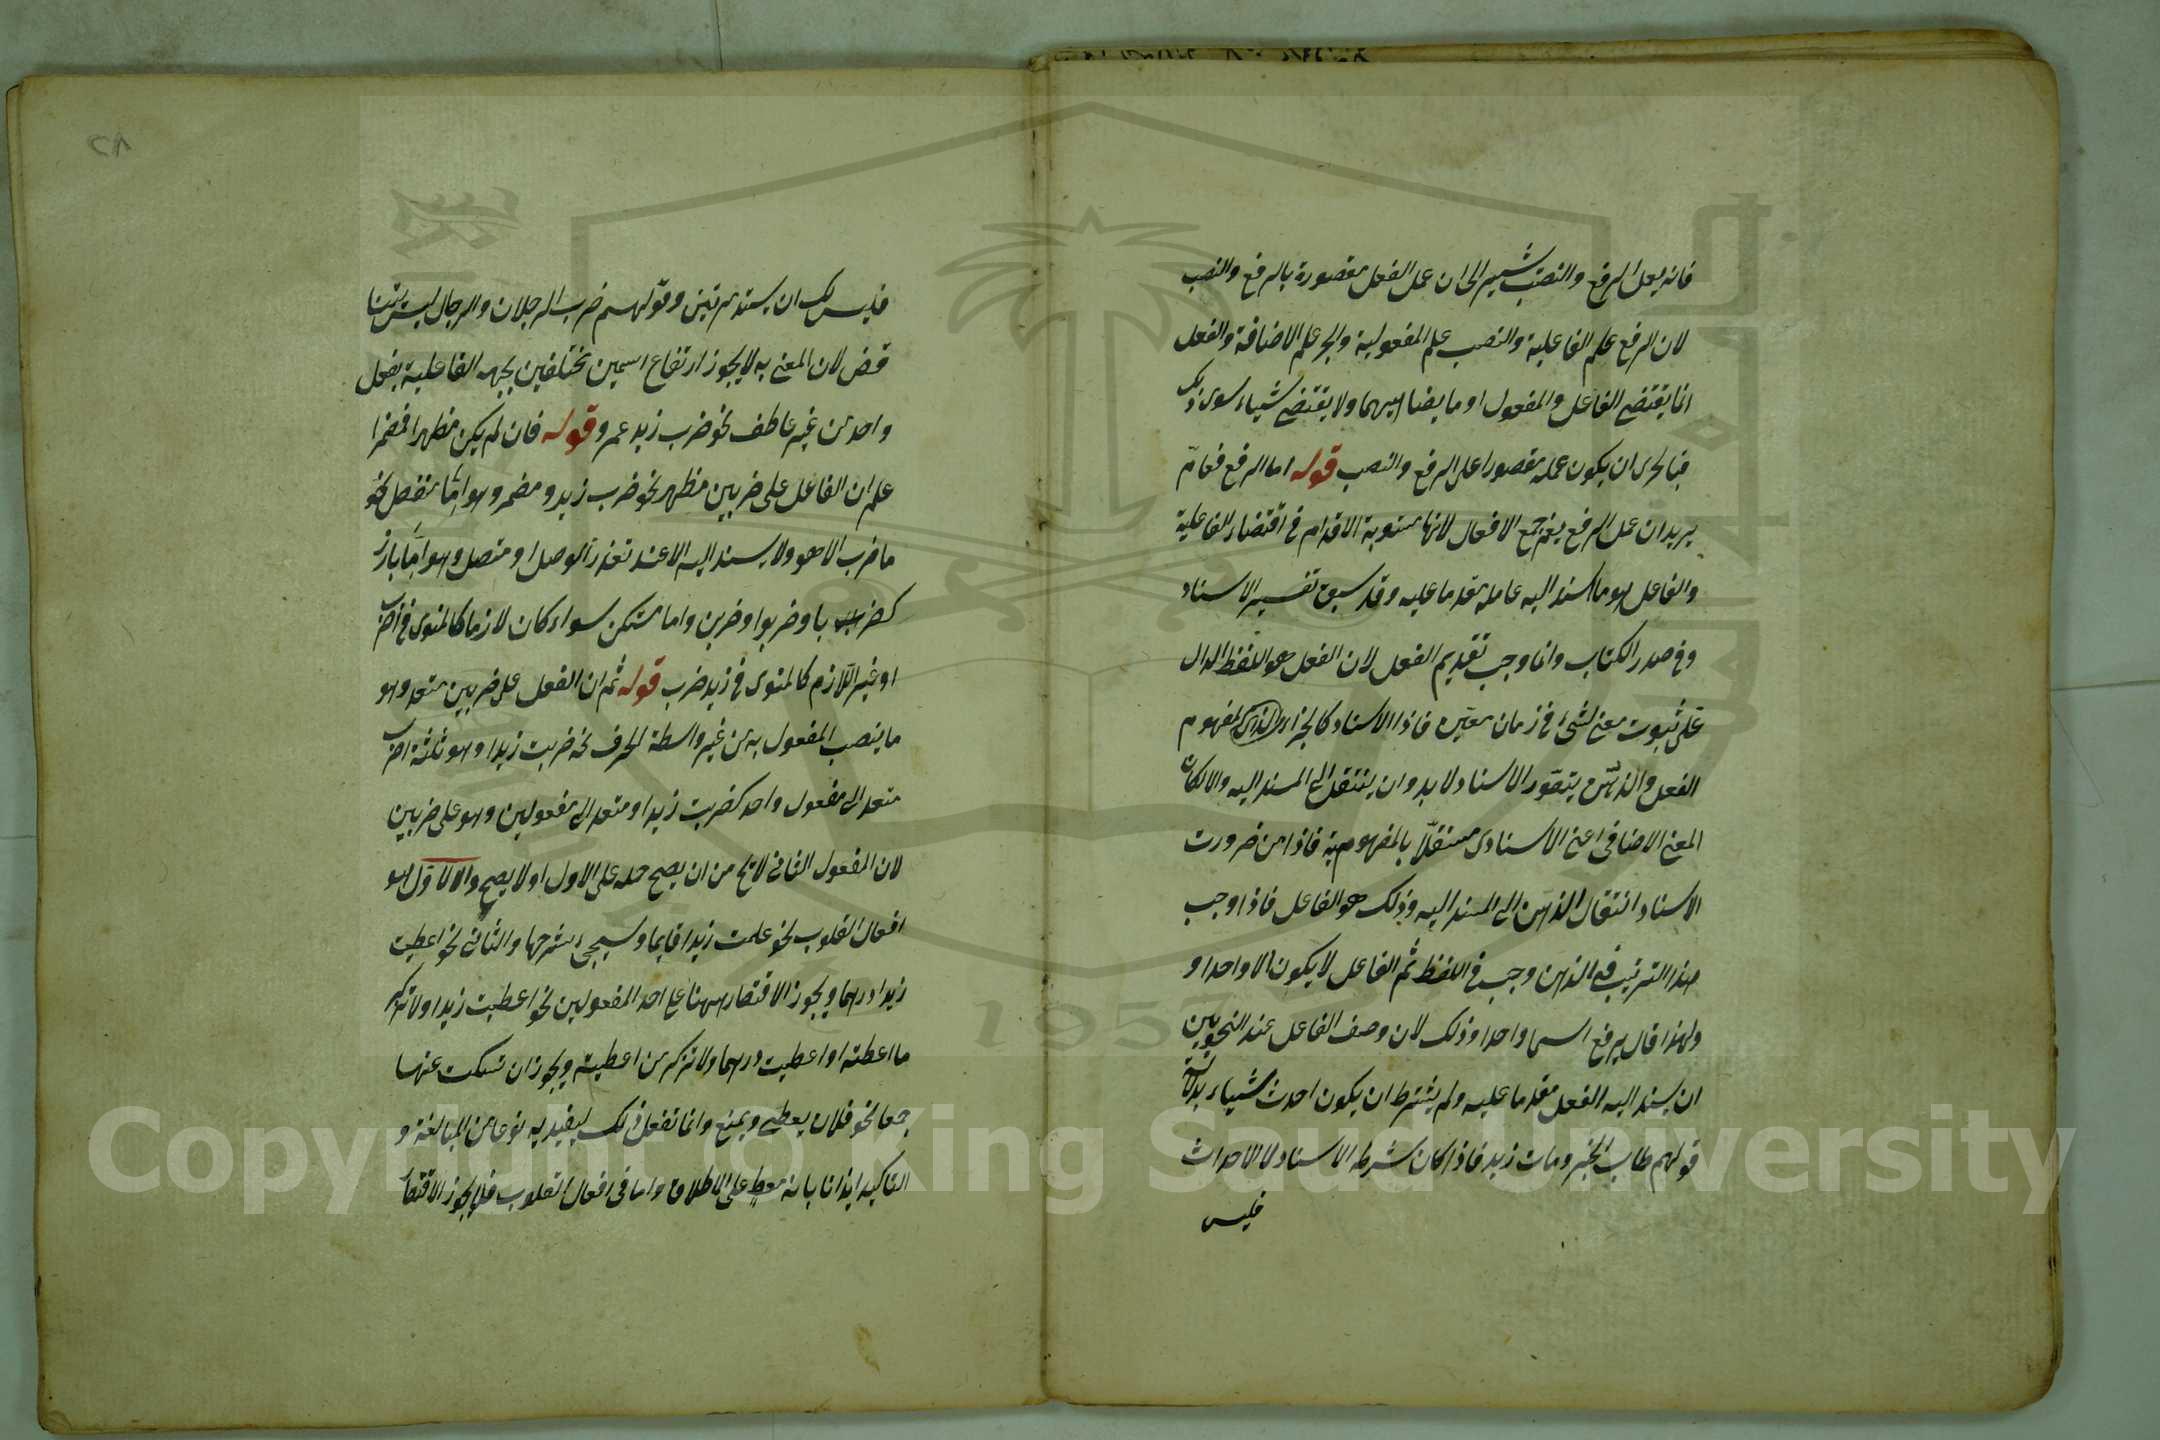 فانه يعمل الرفع والنصب يشير الى ان عمل الفعل مقصورة بالرفع والنصب
لان الرفع علم الفاعلية والنصب علم المفعولية والجر علم الاضافة والفعل
انما يقتضى الفاعل والمفعول او ما يضاهيهما ولا يقتضى شيئا سوى ذلك
فبالحرى ان يكون عمله مقصورا على الرفع والنصب قوله اما الرفع فعام
يريد ان عمل الرفع يعم جميع الافعال لانها مستوية الاقدام فى اقتضاء الفاعلية
والفاعل هو ما اسند اليه عامله مقدما عليه وقد سبق تفسير الاسناد
فى صدر الكتاب وانما وجب تقديم الفعل لان الفعل هو اللفظ الدال
على ثبوت معنى لشئ فى زمان معين فاذا الاسناد كالجزء لمفهوم
الفعل والذهن يتصور الاسناد لابد وان ينتقل الى المسند اليه والا لكان
المعنى الاضافى اعنى الاسنادى مستقلا بالمفهومية فاذا من ضرورت
الاسناد انتقال الذهن الى المسند اليه وذلك هو الفاعل فاذا وجب
هذا الترتيب فى الذهن وجب فى اللفظ ثم الفاعل لا يكون الا واحدا و
ولهذا قال يرفع اسما واحدا وذلك لان وصف الفاعل عند النحويين
ان يسند اليه الفعل مقدما عليه ولم يشترط ان يكون احدث شيئا بدلالة
قولهم طاب الخبز ومات زيد فاذا كان شرطه الاسناد لا الاحداث
فليس
فليس لك ان يسند مرتين وقولهم ضرب الرجلان والرجال ليس بتنا
قض لان المعنى به لا يجوز ارتفاع اسمين مختلفين بجهة الفاعلية بفعل
واحد من غير عاطف نحو ضرب زيد عمرو قوله فان لم يكن مظهرا فمضمرا
علم ان الفاعل على ضربين مظهر نحو ضرب زيد ومضمر وهو اما منفصل نحو
ما ضرب الا هو ولا يسند اليه الا عند تعذر الوصل او متصل وهو اما بارز
كضربا وضربوا وضربن واما مستكن سواء كان لازما كالمنوى فى اضرب
او غير اللازم كالمنوى فى زيد ضرب قوله ثم ان الفعل على ضربين متعد وهو
ما ينصب المفعول به من غير واسطة الحرف نحو ضربت زيدا وهو ثلثة اضرب
متعد الى مفعول واحد كضربت زيدا ومتعد الى مفعولين وهو على ضربين
لان المفعول الثانى لا يخ من ان يصح حمله على الاول اولا يصح والاول هو
افعال القلوب نحو علمت زيدا قايما وسيجئ شرحها والثانى نحو اعطيت
زيدا درهما ويجوز الاقتصار ههنا على احد المفعولين نحو اعطيت زيدا ولا تذكر
ما اعطيته او اعطيت درهما ولا تذكر من اعطيته ويجوز ان تسكت عنهما
جميعا نحو فلان يعطى ويمنع وانما تفعل ذلك ليفيد به نوعا من المبالغة و
التاكيد ايذانا بانه معط على الاطلاق واما فى افعال القلوب فلا يجوز الاقتصا
٢٨
1957
Copyright © King Saud University